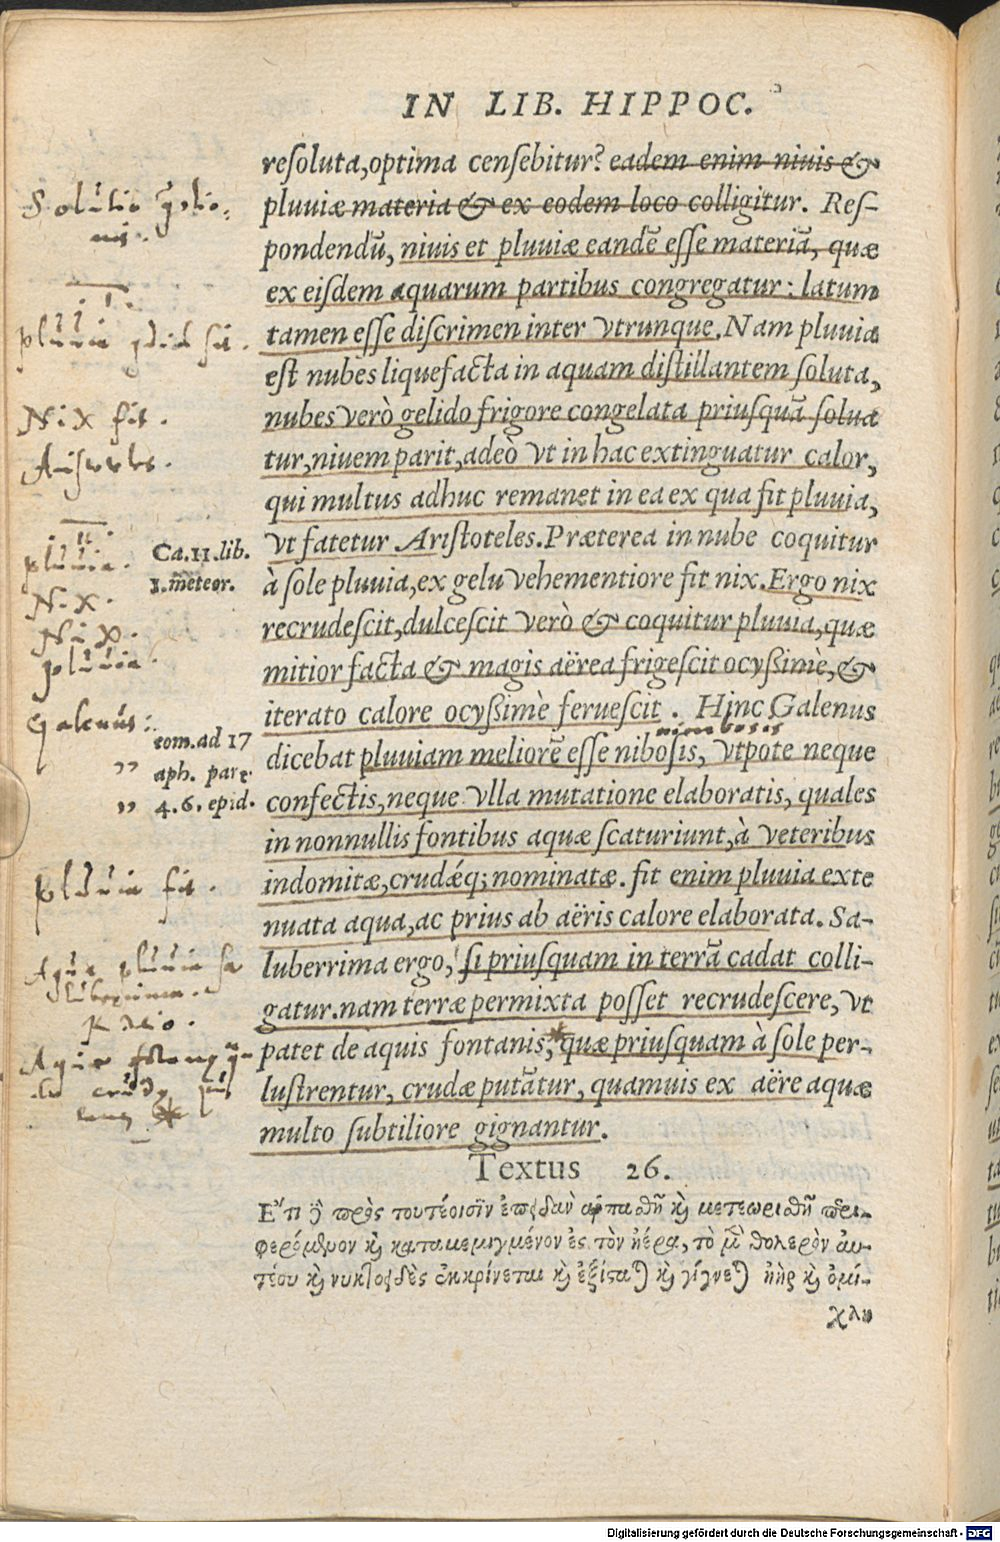 IN LIB. HIPPOC.
resoluta,optima censebitur? eadem enim niuis &
pluuiæ materia & ex eodem loco colligitur. Res-
pondendū, niuis et pluuiæ eandē esse materiā, quæ
ex eisdem aquarum partibus congregatur: latum
tamen esse discrimen inter vtrunque. Nam pluuia
est nubes liquefacta in aquam distillantem soluta,
nubes verò gelido frigore congelata priusquā solua
tur,niuem parit,adeò vt in hac extinguatur calor,
qui multus adhuc remanet in ea ex qua fit pluuia,
vt fatetur Aristoteles. Præterea in nube coquitur
à sole pluuia,ex gelu vehementiore fit nix. Ergo nix
recrudescit,dulcescit verò & coquitur pluuia,quæ
mitior facta & magis aërea frigescit ocyßimè,&
iterato calore ocyßimè feruescit. Hinc Galenus
nimbosis
dicebat pluuiam meliorē esse nibosis, vtpote neque
confectis,neque vlla mutatione elaboratis, quales
in nonnullis fontibus aquæ scaturiunt,à veteribus
indomitæ,crudæq́; nominatæ. fit enim pluuia exte
nuata aqua,ac prius ab aëris calore elaborata. Sa-
luberrima ergo, si priusquam in terrā cadat colli-
gatur. nam terræ permixta posset recrudescere, vt
patet de aquis fontanis, quæ priusquam à sole per-
lustrentur, crudæ putātur, quamuis ex aëre aquæ
multo subtiliore gignantur.
Solutio
.I.
pluuia
Nix fit.
Aristoteles.
.II.
pluuia.
Nix.
Nix.
pluuia.
Galenus:
Ca.11.lib.
1.meteor.
com.ad 17
aph. part.
4.6. epid.
pluuia fit.
Aqua pluuia sa
luberrima.
Ratio.
Textus 26.
Ἔτι ϗ πρὸς τουτέοισιν ἐπειδὰν ἁρπαθῇ ϗ μετεωριθῇ περι-
φερόμενον ϗ καταμεμιγμένον ἐς τὸν ἠέρα, τὸ μὲν θολερὸν αυ-
τέου ϗ νυκτοειδὲς ἐκκρίνεται ϗ ἐξίσταται ϗ γίγνεται ἠὴρ ϗ ὀμί-
χλη